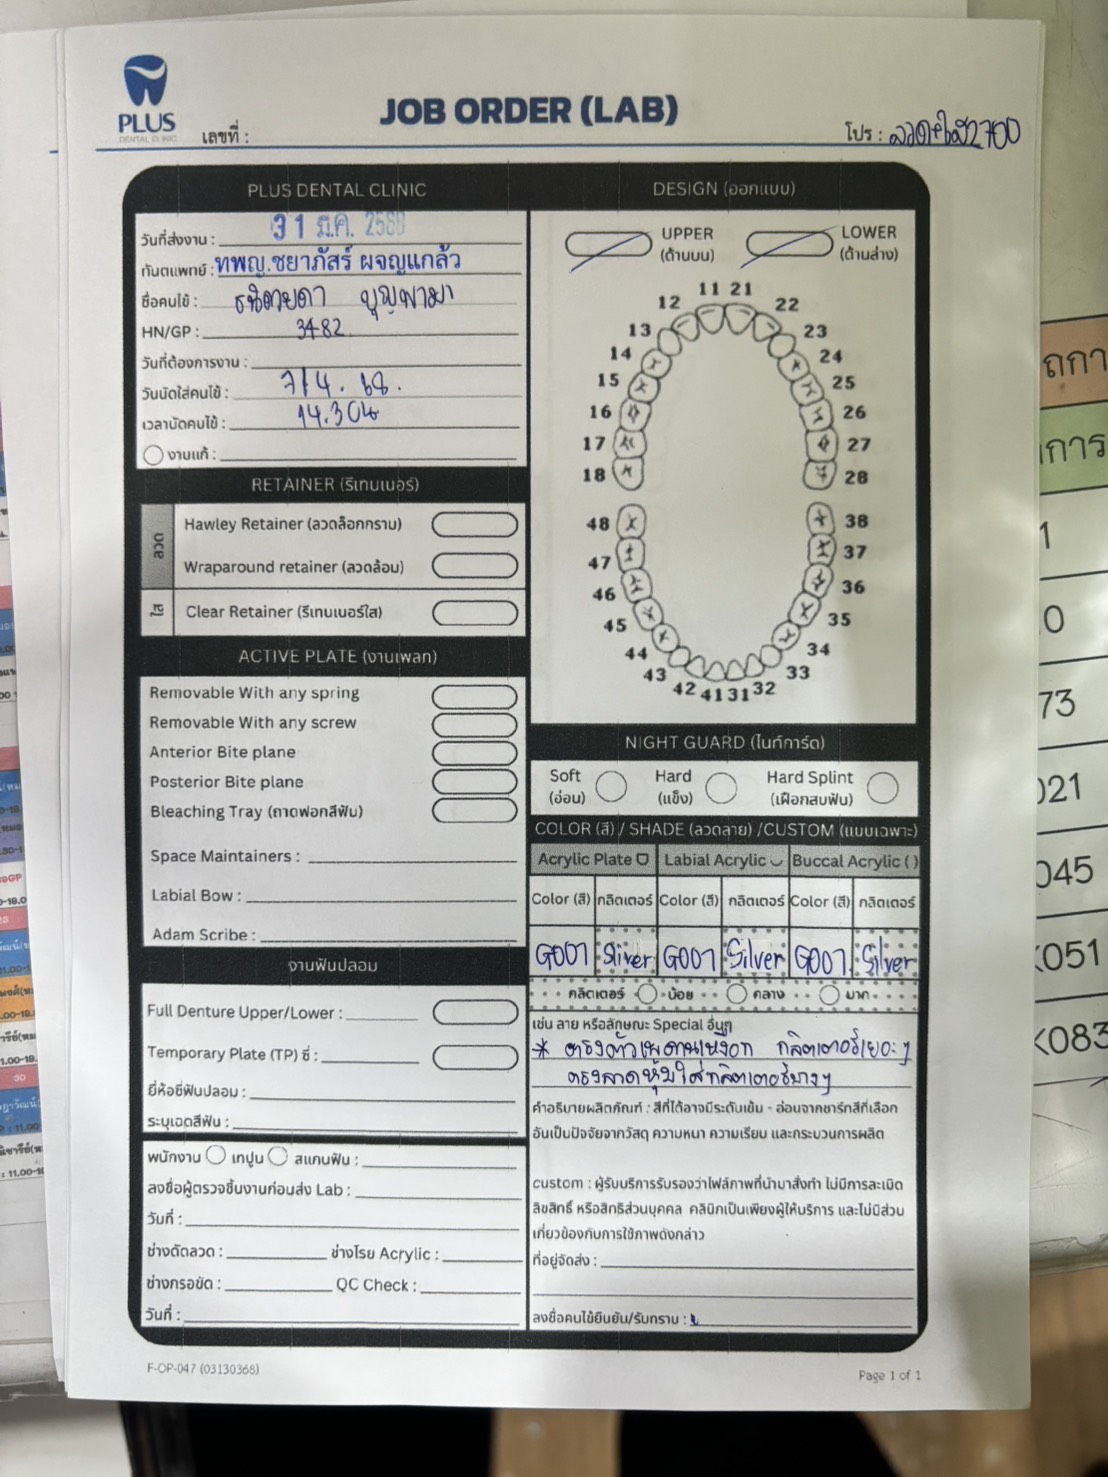 PLUS
DENTAL CLINIC
JOB ORDER (LAB)
เลขที่ :
โปร : ลวด+ใส2700
PLUS DENTAL CLINIC
วันที่ส่งงาน : 31 มี.ค. 2568
ทันตแพทย์ : ทพญ.ชยาภัสร์ ผจญแกล้ว
ชื่อคนไข้ :
HN/GP : 3482
วันที่ต้องการงาน :
วันนัดใส่คนไข้ : 7/4. 68.
เวลานัดคนไข้ : 14.30น
งานแก้ :
RETAINER (รีเทนเนอร์)
ลวด
Hawley Retainer (ลวดล็อกกราม)
Wraparound retainer (ลวดล้อม)
ใส
Clear Retainer (รีเทนเนอร์ใส)
ACTIVE PLATE (งานเพลท)
Removable With any spring
Removable With any screw
Anterior Bite plane
Posterior Bite plane
Bleaching Tray (ถาดฟอกสีฟัน)
Space Maintainers :
Labial Bow :
Adam Scribe :
งานฟันปลอม
Full Denture Upper/Lower :
Temporary Plate (TP) ซี่ :
ยี่ห้อซี่ฟันปลอม :
ระบุเฉดสีฟัน :
พนักงาน เทปูน สแกนฟัน :
ลงชื่อผู้ตรวจชิ้นงานก่อนส่ง Lab :
วันที่ :
ช่างดัดลวด : ช่างโรย Acrylic :
ช่างกรอขัด : QC Check :
วันที่ :
DESIGN (ออกแบบ)
UPPER
(ด้านบน)
LOWER
(ด้านล่าง)
11 21
12 22
13 23
14 24
15 25
16 26
17 27
18 28
48 38
47 37
46 36
45 35
44 34
43 33
42 41 31 32
NIGHT GUARD (ไนท์การ์ด)
Soft
(อ่อน)
Hard
(แข็ง)
Hard Splint
(เฝือกสบฟัน)
COLOR (สี) / SHADE (ลวดลาย) /CUSTOM (แบบเฉพาะ)
Acrylic Plate Labial Acrylic Buccal Acrylic ( )
Color (สี) กลิตเตอร์ Color (สี) กลิตเตอร์ Color (สี) กลิตเตอร์
G007 Sliver G007 Silver G007 Silver
กลิตเตอร์ น้อย กลาง มาก
เช่น ลาย หรือลักษณะ Special อื่นๆ
* ตรงตัวเพดานเหงือก กลิตเตอร์เยอะๆ
ตรงลวดหุ้มใส่กลิตเตอร์บางๆ
คำอธิบายผลิตภัณฑ์ : สีที่ได้อาจมีระดับเข้ม - อ่อนจากชาร์ทสีที่เลือก
อันเป็นปัจจัยจากวัสดุ ความหนา ความเรียบ และกระบวนการผลิต
custom : ผู้รับบริการรับรองว่าไฟล์ภาพที่นำมาสั่งทำ ไม่มีการละเมิด
ลิขสิทธิ์ หรือสิทธิส่วนบุคคล คลินิกเป็นเพียงผู้ให้บริการ และไม่มีส่วน
เกี่ยวข้องกับการใช้ภาพดังกล่าว
ที่อยู่จัดส่ง :
ลงชื่อคนไข้ยืนยัน/รับทราบ :
F-OP-047 (03130368)
Page 1 of 1